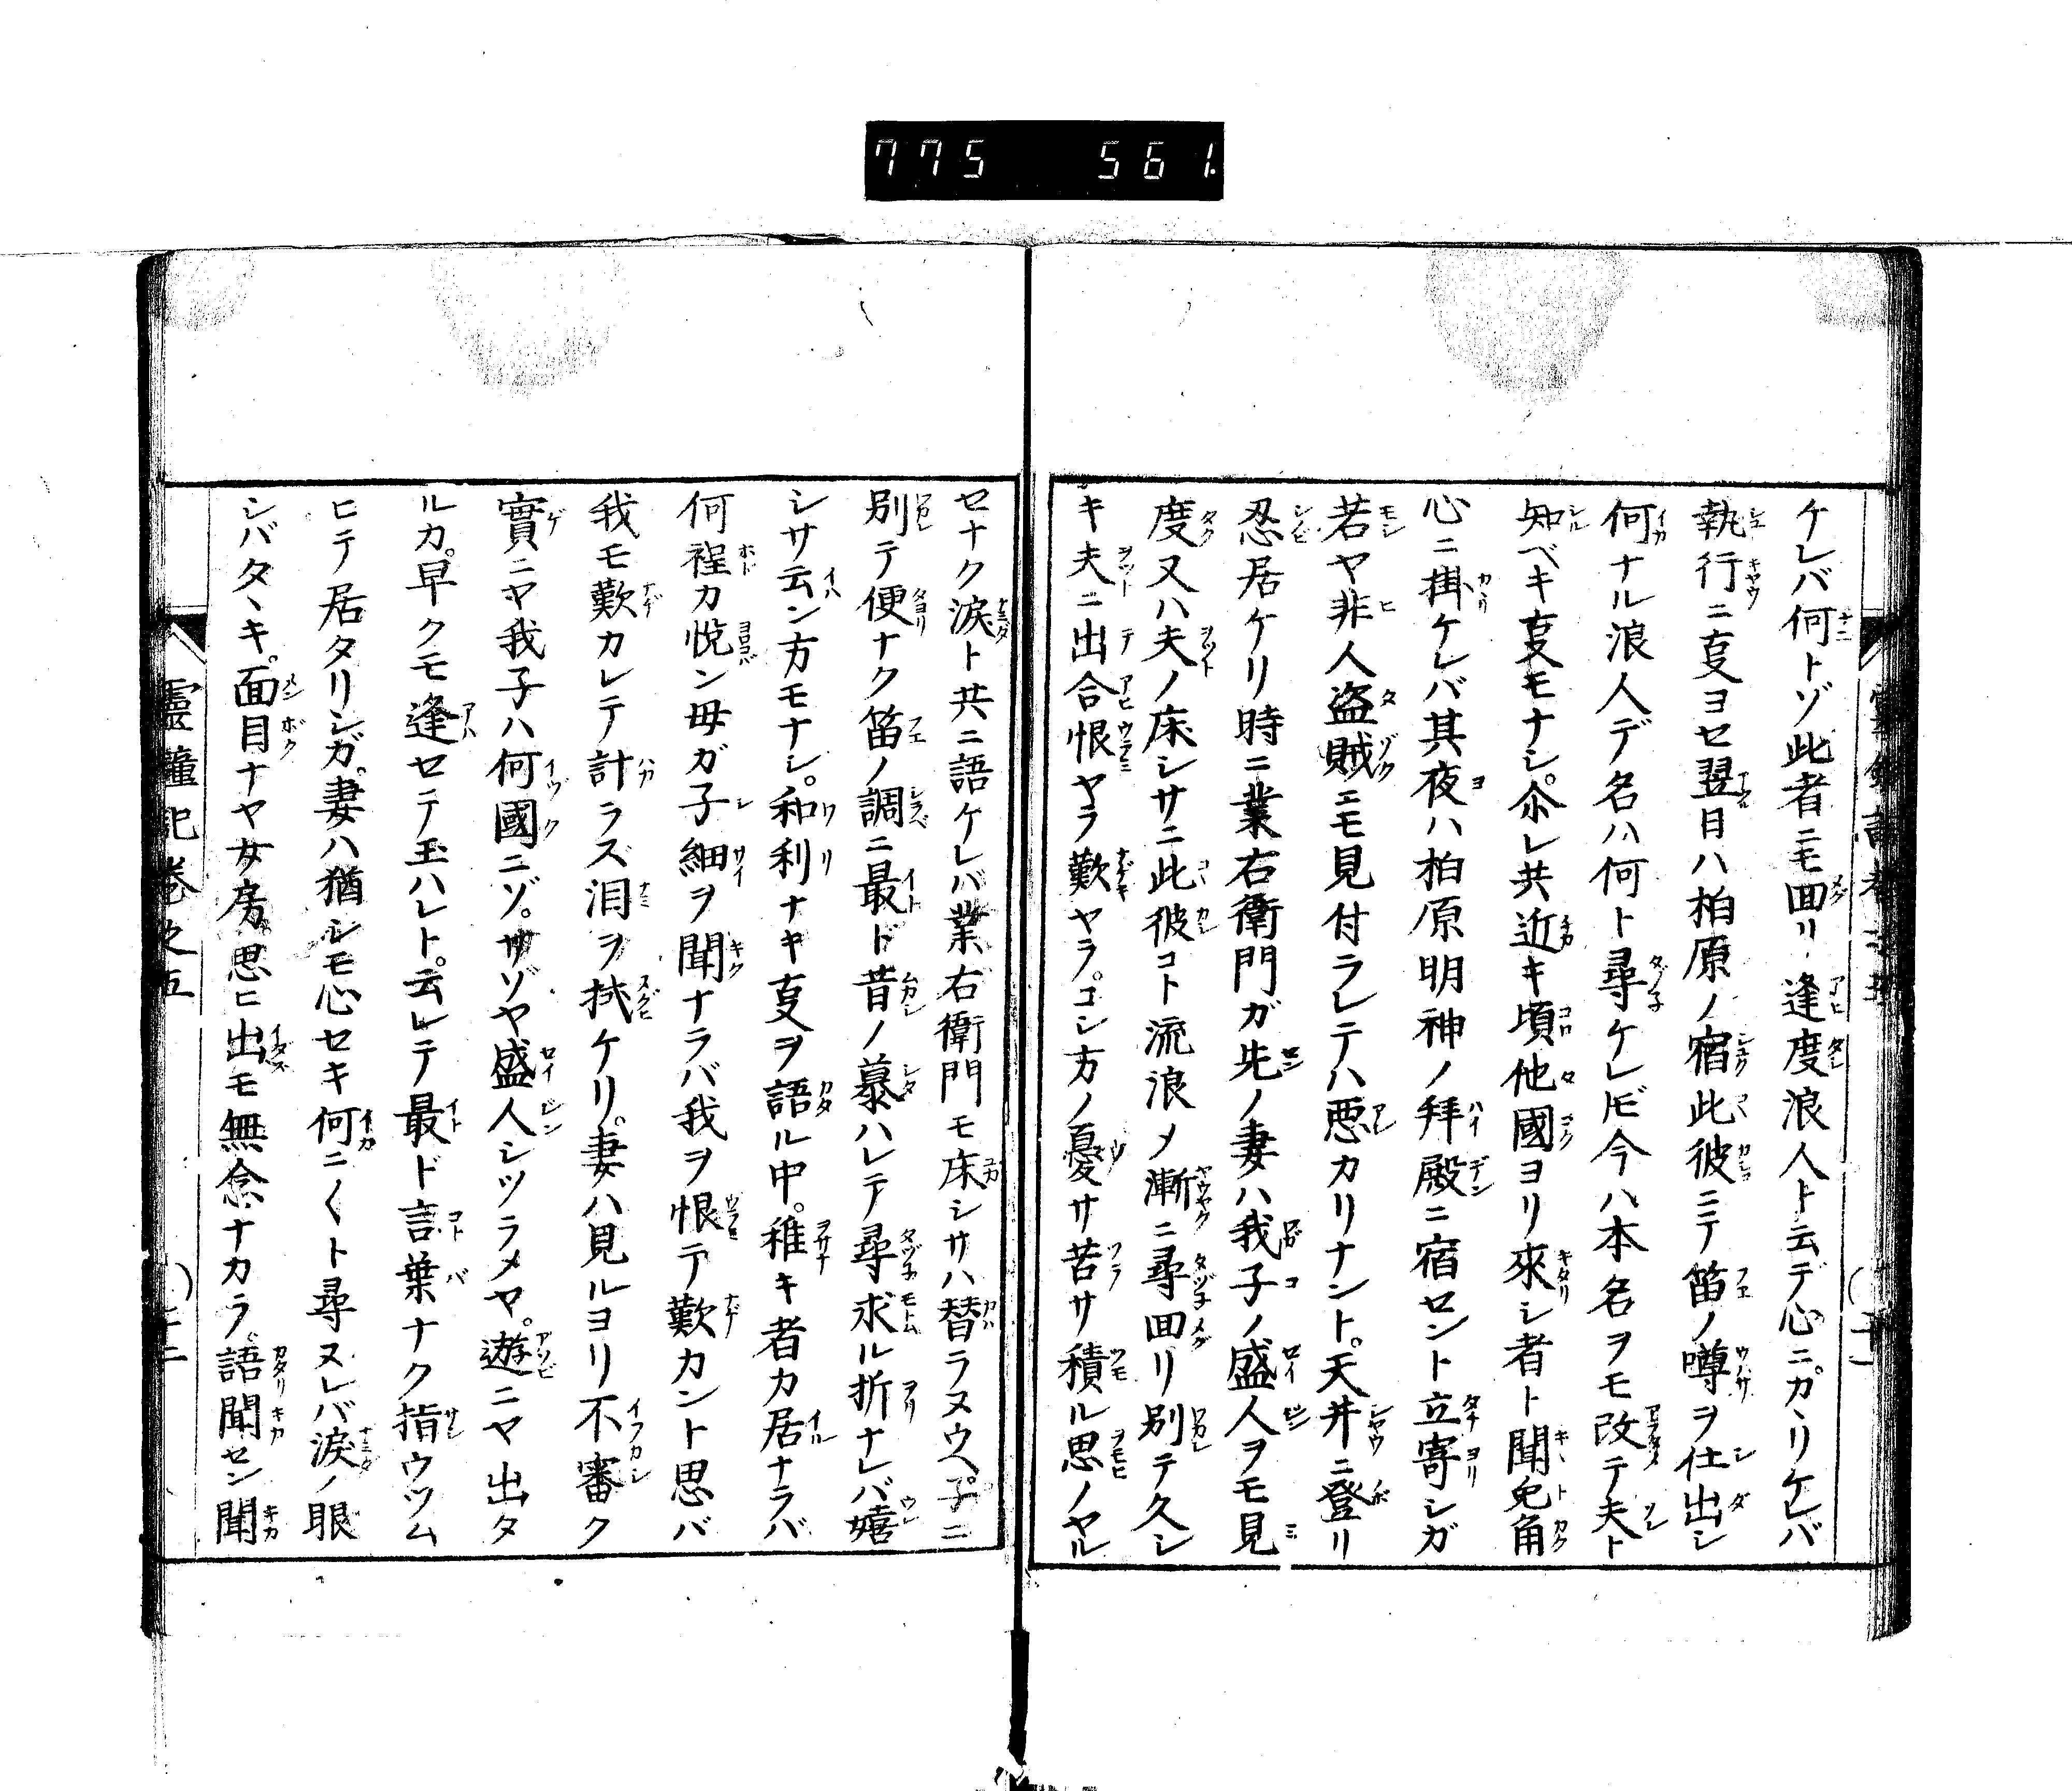 775 561.
ケレバ何トゾ此者ニモ回リ逢度浪人ト云デ心ニカヽリケレバ
執行ニ叓ヨセ翌日ハ柏原ノ宿此彼ニテ笛ノ噂ヲ仕出シ
何ナル浪人デ名ハ何ト尋ケレドモ今ハ本名ヲモ改テ夫ト
知ベキ叓モナシ。尒レ共近キ頃他國ヨリ來シ者ト聞免角
心ニ掛ケレバ其夜ハ柏原明神ノ拜殿ニ宿セント立寄シガ
若ヤ非人盗賊ニモ見付ラレテハ悪カリナント。天井ニ登リ
忍居ケリ時ニ業右衛門ガ先ノ妻ハ我子ノ盛人ヲモ見
度又ハ夫ノ床シサニ此彼コト流浪メ漸ニ尋回リ別テ久シ
キ夫ニ出合恨ヤラ歎ヤラ。コシ方ノ憂サ苦サ積ル思ノヤル
セナク涙ト共ニ語ケレバ業右衛門モ床シサハ替ラヌウヘ。子ニ
別テ便ナク笛ノ調ニ最ド昔ノ慕ハレテ尋求ル折ナレバ嬉
シサ云ン方モナシ。和利ナキ叓ヲ語ル中。稚キ者カ居ナラバ
何程カ悦ン母ガ子細ヲ聞ナラバ我ヲ恨テ歎カント思バ
我モ歎カレテ計ラス泪ヲ拭ケリ。妻ハ見ルヨリ不審ク
實ニヤ我子ハ何國ニゾ。サゾヤ盛人シツラメヤ。遊ニヤ出タ
ルカ。早クモ逢セテ玉ハレト。云レテ最ド言葉ナク指ウツム
ヒテ居タリシガ。妻ハ猶シモ心セキ何ニ〱ト尋ヌレバ涙ノ眼
シバタヽキ。面目ナヤ女房思ヒ出モ無念ナカラ語聞セン聞
靈鐘記巻之五